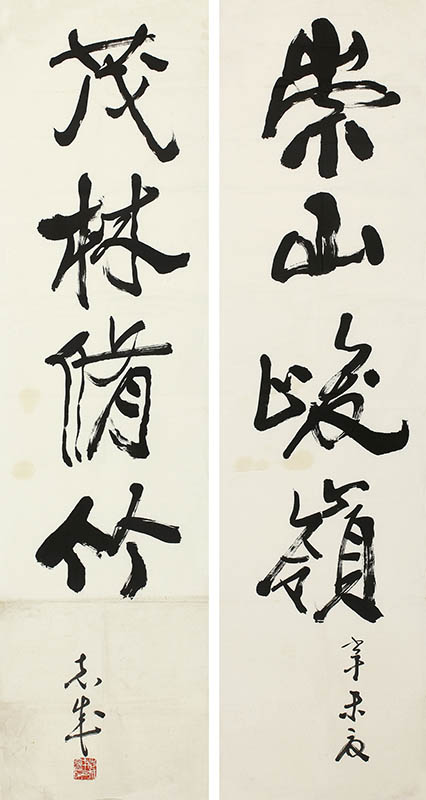 崇山峻嶺
辛未夏
茂林脩竹
志成